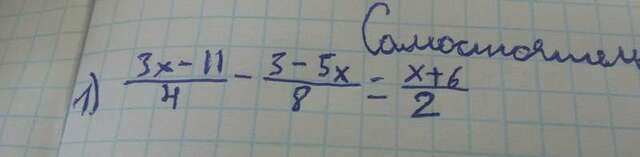 Самостоятел
1) (3x - 11)/4 - (3 - 5x)/8 = (x + 6)/2